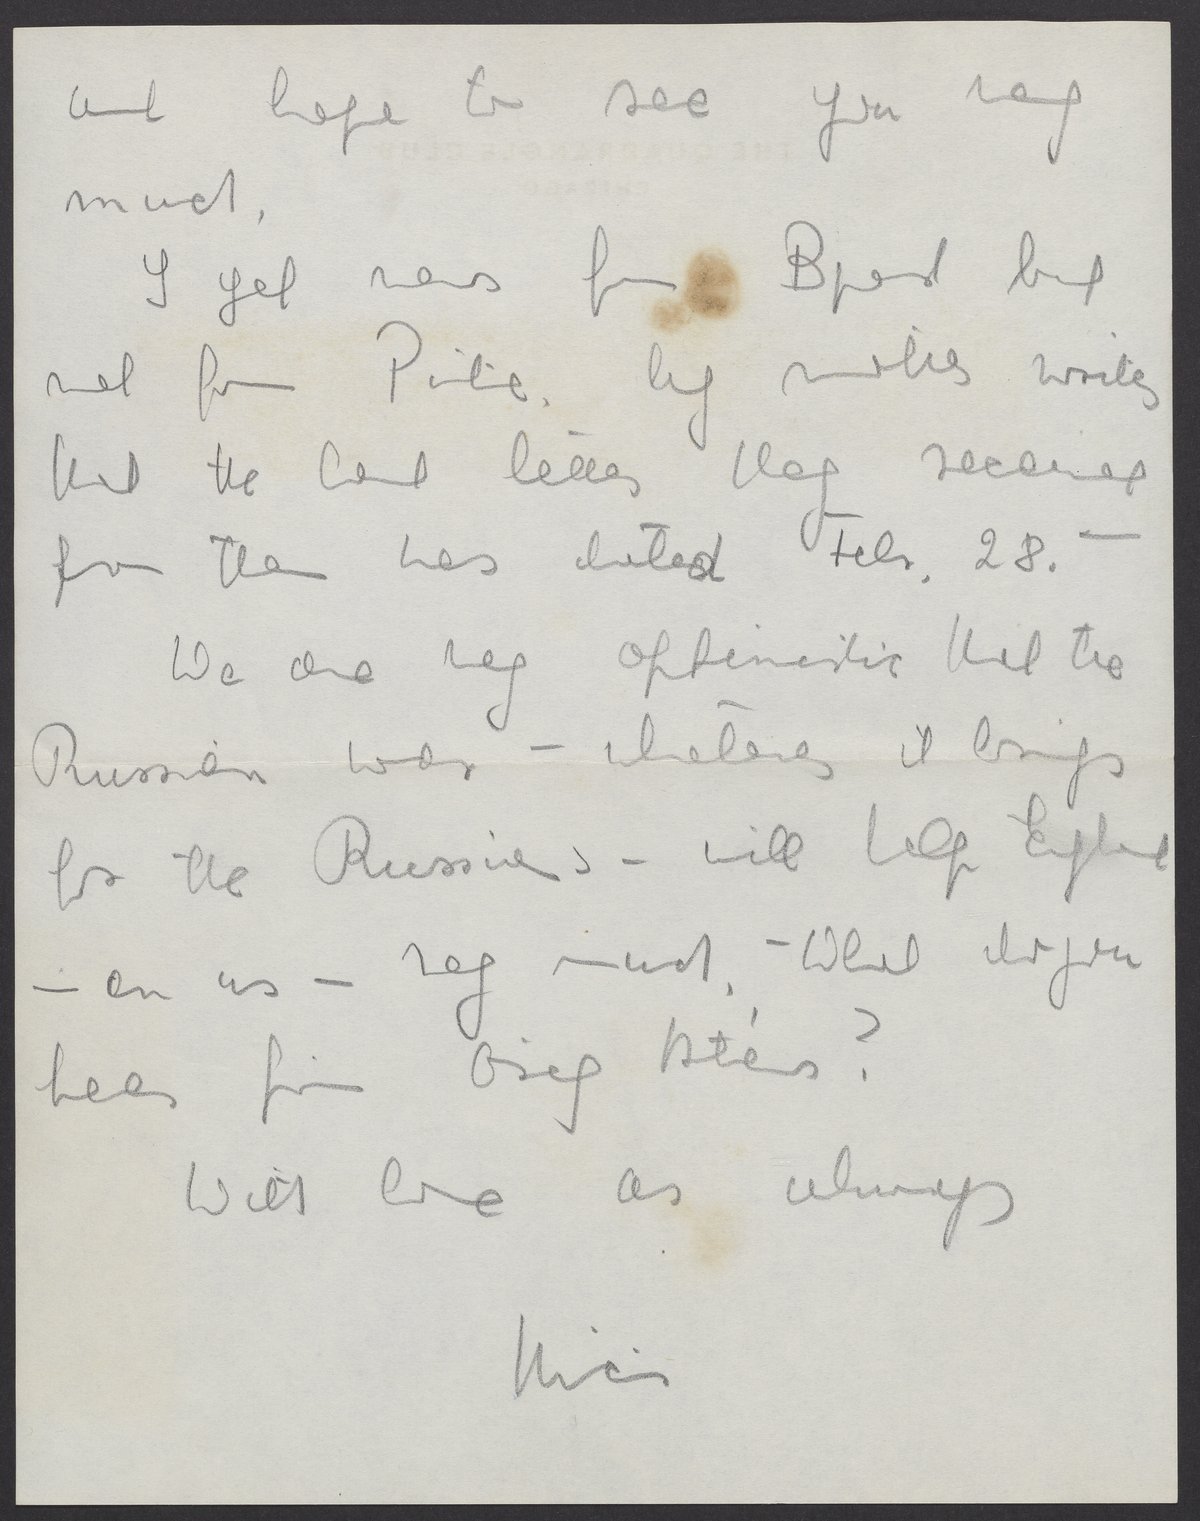 and hope to see you very
much.
I get news from Bpest but
not from Pista. My mother writes
that the last letter they received
from them was dated Feb. 28. –
We are very optimistic that the
Russian war – whatever it brings
for the Russians – will help England
– an us – very much. – What do you
hear from
With love as always